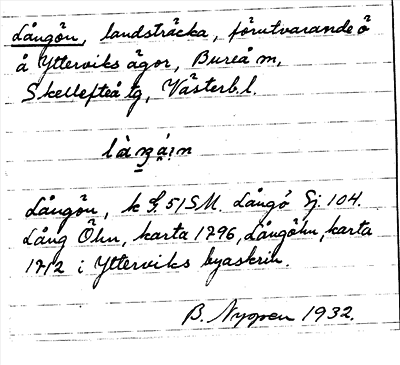 Långön, landsträcka, förutvarande ö
å Ytterviks ägor, Bureå sn,
Skellefteå tg, Västerb. l.
Långön, k 51 SM. Långö Sj. 104.
Lång Öhn, karta 1796, Långöhn, karta
1712 i Ytterviks byaskrin.
B. Nygren 1932.